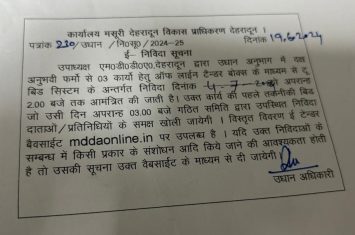 कार्यालय मसूरी देहरादून विकास प्राधिकरण देहरादून ।
पत्रांक 230/उधान /नि०सू० /2024-25 दिनांक 19.6.2024
ई- निविदा सूचना
उपाध्यक्ष एम०डी०डी०ए०,देहरादून द्वारा उधान अनुभाग में दक्ष
अनुभवी फर्मो से 03 कार्यो हेतु ऑफ लाईन टैन्डर बोक्स के माध्यम से दू
बिड सिस्टम के अन्तर्गत निविदा दिनांक 4-7-2024 को अपरान्ह
2.00 बजे तक आमंत्रित की जाती है। उक्त कार्य की पहले तकनीकी बिड
जो उसी दिन अपरान्ह 03.00 बजे गठित समिति द्वारा उपस्थित निविदा
दाताओ/प्रतिनिधियों के समक्ष खोली जायेगी । विस्तृत विवरण ई टेन्डर
बैवसाईट mddaonline.in पर उपलब्ध है । यदि उक्त निविदाओं के
सम्बन्ध में किसी प्रकार के संशोधन आदि किये जाने की आवश्यकता होती
है तो उसकी सूचना उक्त वैबसाईट के माध्यम से दी जायेगी।
उधान अधिकारी